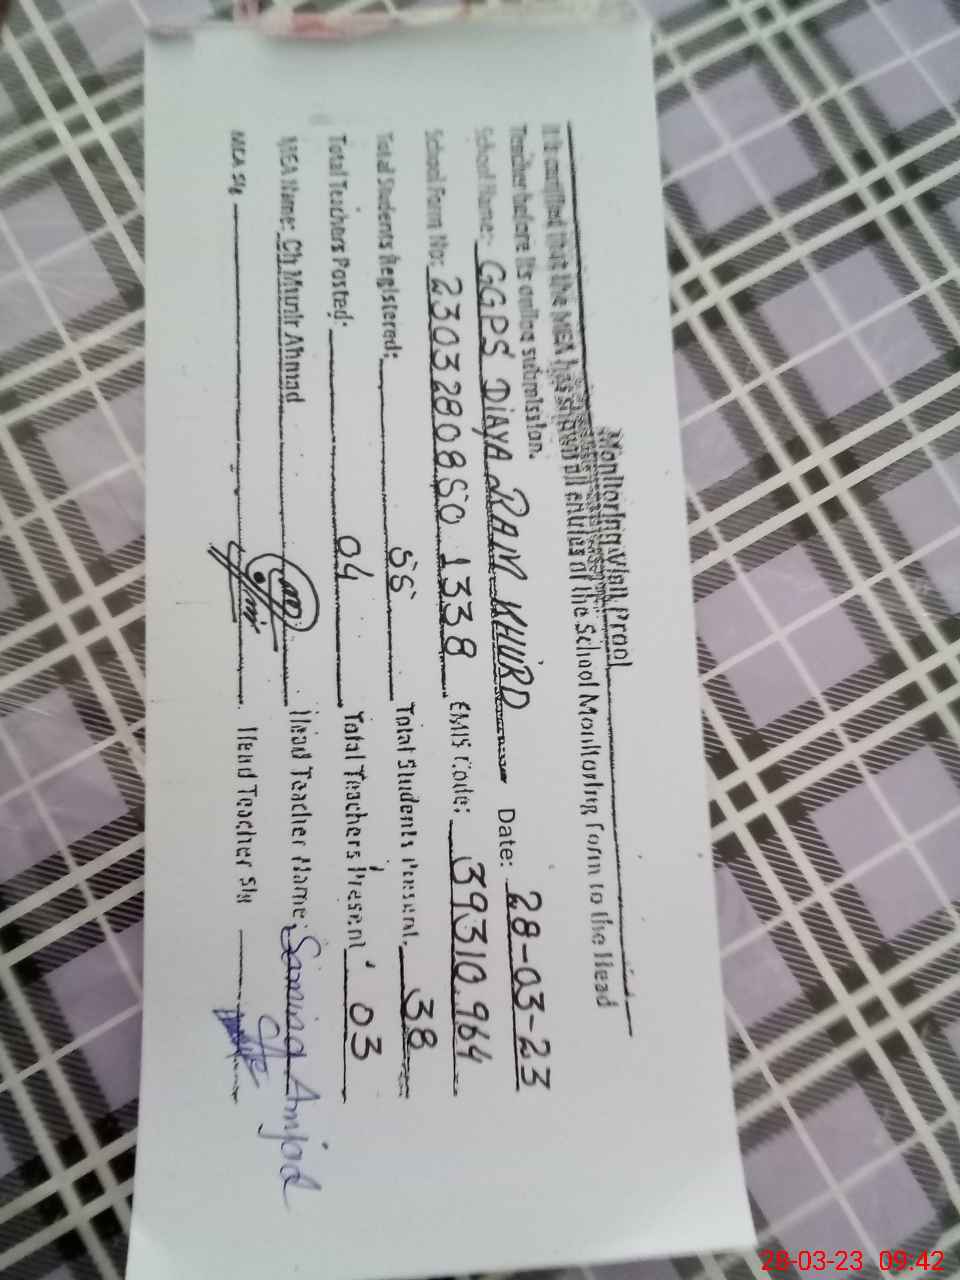 Monitoring Visit Proof
It is certified that the MEA has shown all entries of the School Monitoring Form to the Head
Teacher before its online submission.
School Name:- GGPS DIAYA RAM KHURD Date: 28-03-23
School Form No: 2303280850 1338 EMIS Code: 39310964
Total Students Registered: 55 Total Students Present. 38
Total Teachers Posted: 04 Total Teachers Present 03
MEA Name: Ch Munir Ahmad Head Teacher Name: Samina Amjad
MEA Sig Head Teacher Sig
28-03-23 09:42